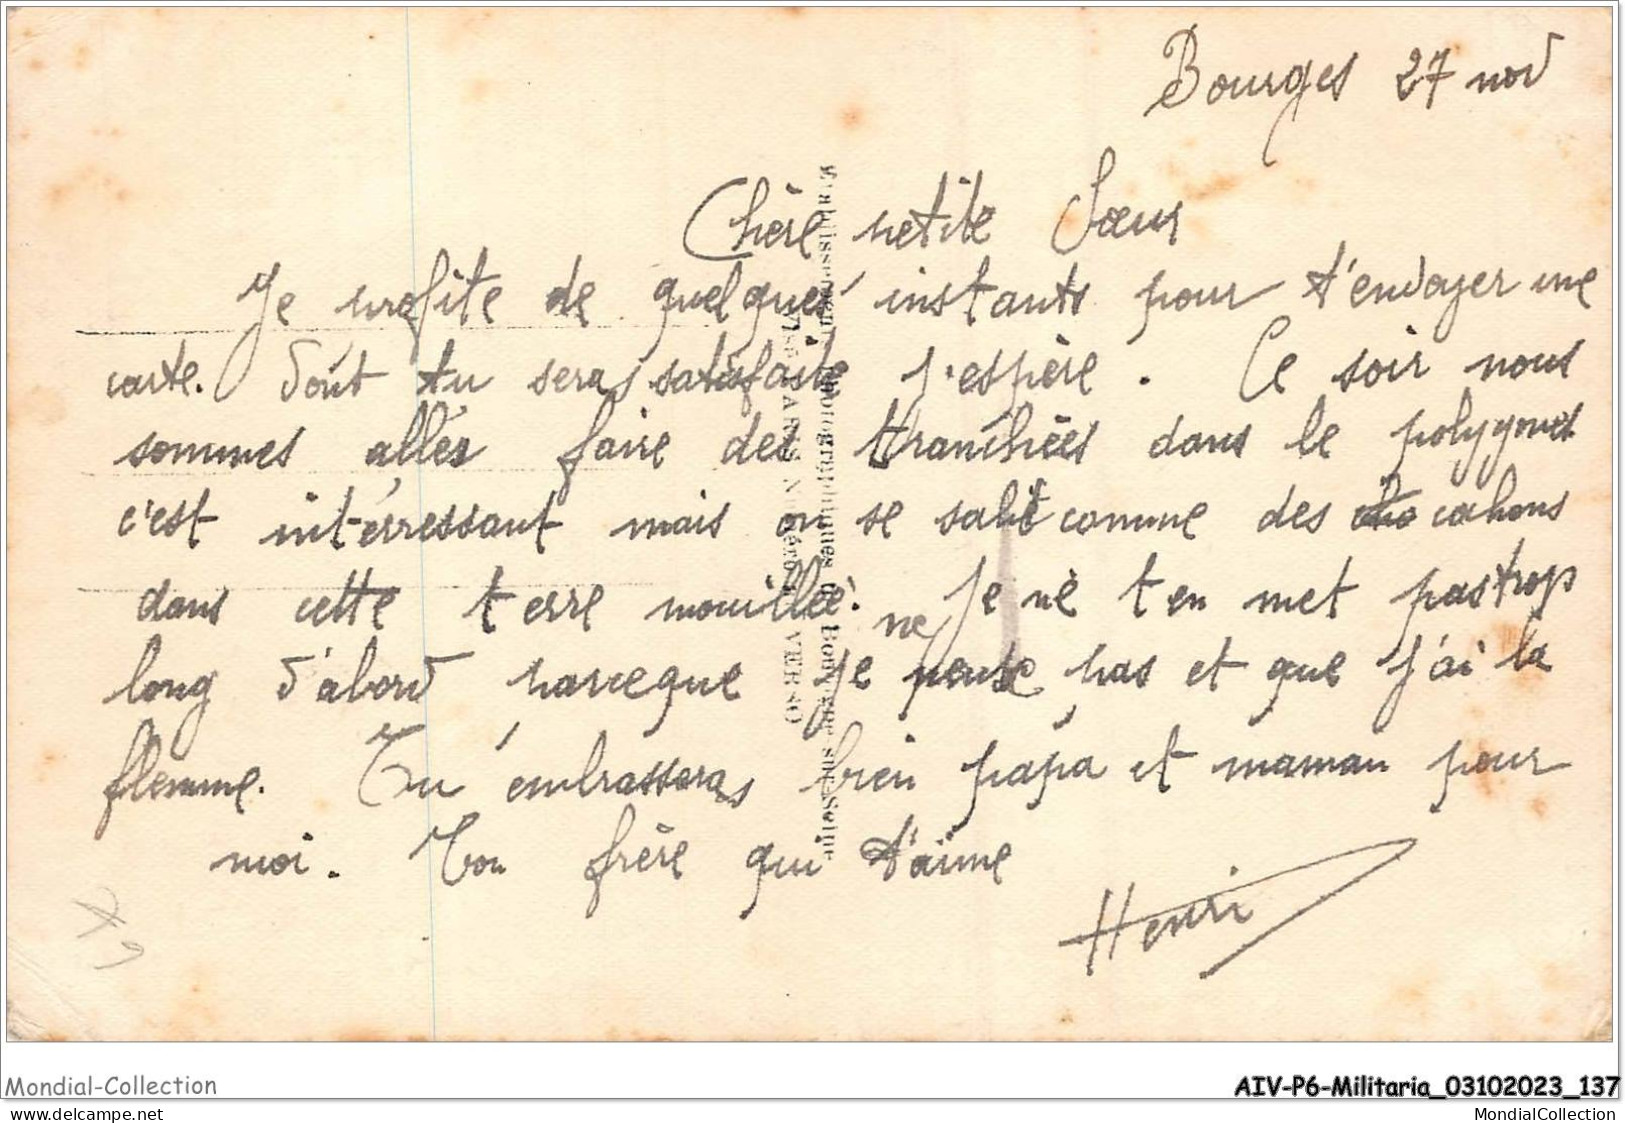 Bourges 27 nov
Chère petite Sœur
Je profite de quelques instants pour t'envoyer une
carte. Dont tu seras satisfaite j'espère. Ce soir nous
sommes allés faire des tranchées dans le polygones
c'est intérressant mais on se salit comme des cahons
dans cette terre mouillée. Je ne t en met pas trop
long d'abord parceque je ne peux pas et que j'ai la
flemme. Tu embrasseras bien papa et maman pour
moi. Ton frère qui t'aime
Henri
Mondial-Collection
AIV-P6-Militaria_03102023_137
delcampe.net
MondialCollection